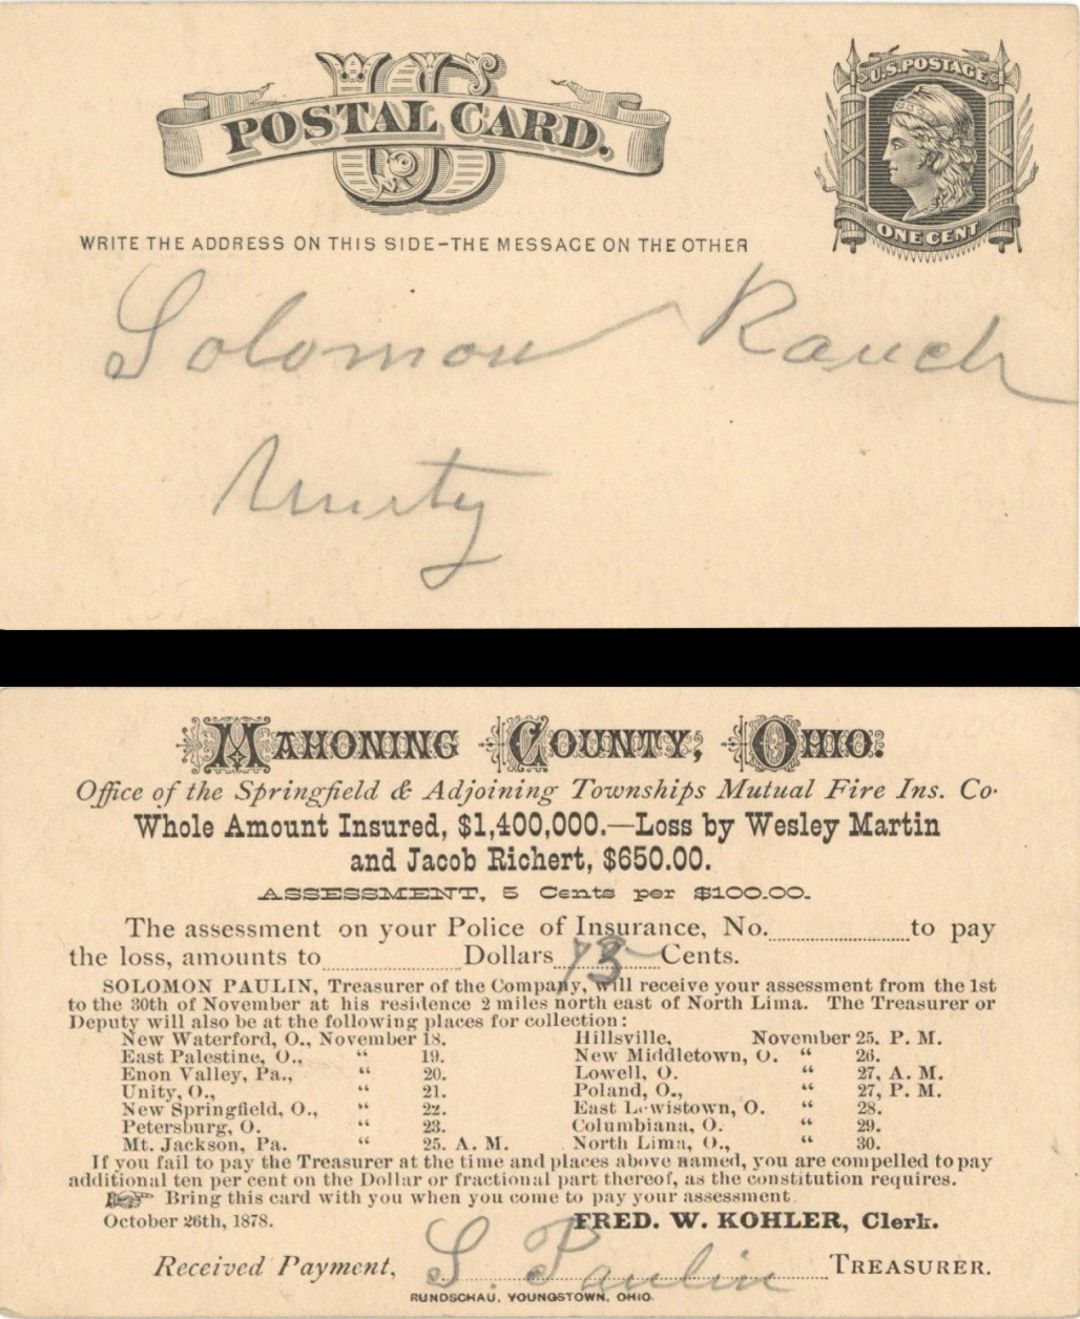 US
POSTAL CARD.
U.S. POSTAGE
ONE CENT
WRITE THE ADDRESS ON THIS SIDE-THE MESSAGE ON THE OTHER
Solomon Rauch
Unity
MAHONING COUNTY, OHIO.
Office of the Springfield & Adjoining Townships Mutual Fire Ins. Co.
Whole Amount Insured, $1,400,000.—Loss by Wesley Martin
and Jacob Richert, $650.00.
ASSESSMENT, 5 Cents per $100.00.
The assessment on your Police of Insurance, No.............to pay
the loss, amounts to.............Dollars 73 Cents.
SOLOMON PAULIN, Treasurer of the Company, will receive your assessment from the 1st
to the 30th of November at his residence 2 miles north east of North Lima. The Treasurer or
Deputy will also be at the following places for collection:
New Waterford, O., November 18. Hillsville, November 25. P. M.
East Palestine, O., “ 19. New Middletown, O. “ 26.
Enon Valley, Pa., “ 20. Lowell, O. “ 27, A. M.
Unity, O., “ 21. Poland, O., “ 27, P. M.
New Springfield, O., “ 22. East Lewistown, O. “ 28.
Petersburg, O. “ 23. Columbiana, O. “ 29.
Mt. Jackson, Pa. “ 25. A. M. North Lima, O., “ 30.
If you fail to pay the Treasurer at the time and places above named, you are compelled to pay
additional ten per cent on the Dollar or fractional part thereof, as the constitution requires.
Bring this card with you when you come to pay your assessment.
October 26th, 1878. FRED. W. KOHLER, Clerk.
Received Payment, S. Paulin TREASURER.
RUNDSCHAU, YOUNGSTOWN, OHIO.